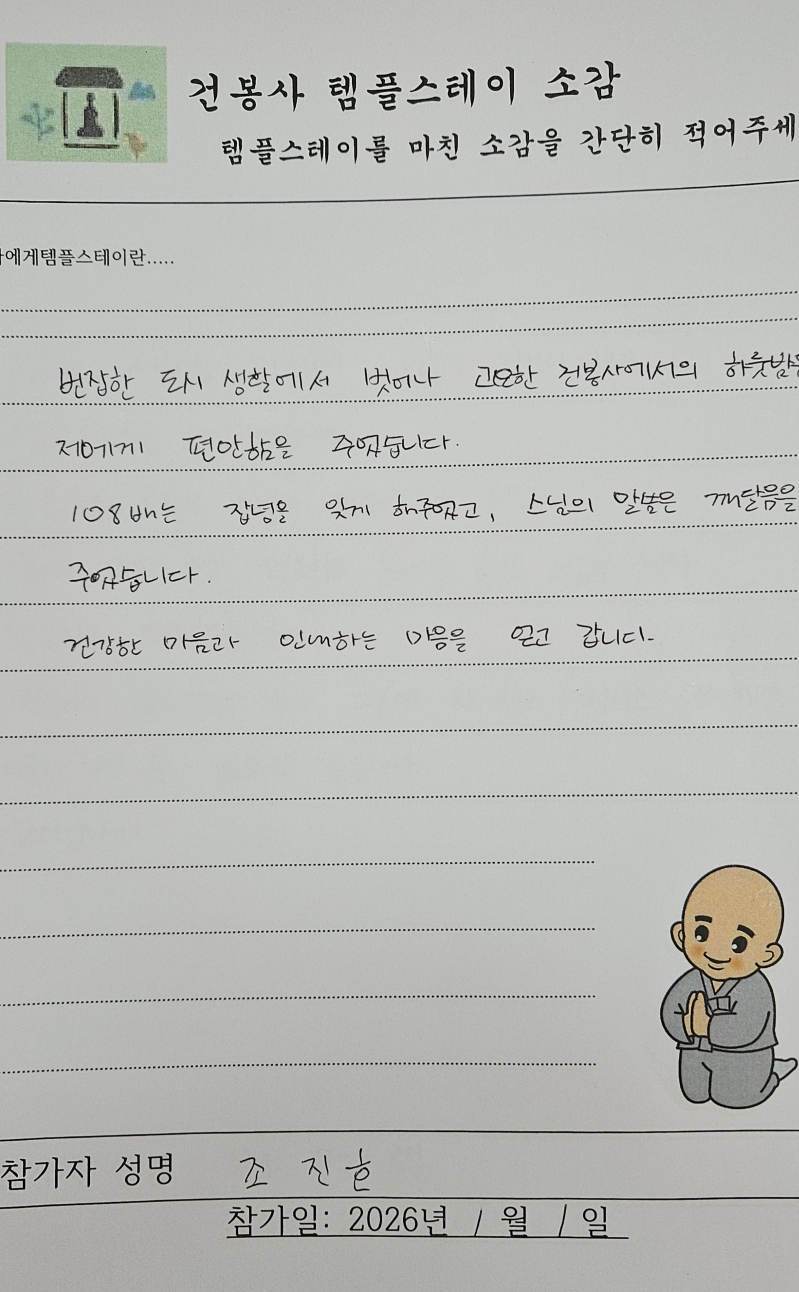 건봉사 템플스테이 소감
템플스테이를 마친 소감을 간단히 적어주세
에게템플스테이란.....
번잡한 도시 생활에서 벗어나 고요한 건봉사에서의 하룻밤은
제에게 편안함을 주었습니다.
108배는 잡념을 잊게 해주었고, 스님의 말씀은 깨달음을
주었습니다.
건강한 마음과 인내하는 마음을 얻고 갑니다.
참가자 성명 조진호
참가일: 2026년 / 월 / 일